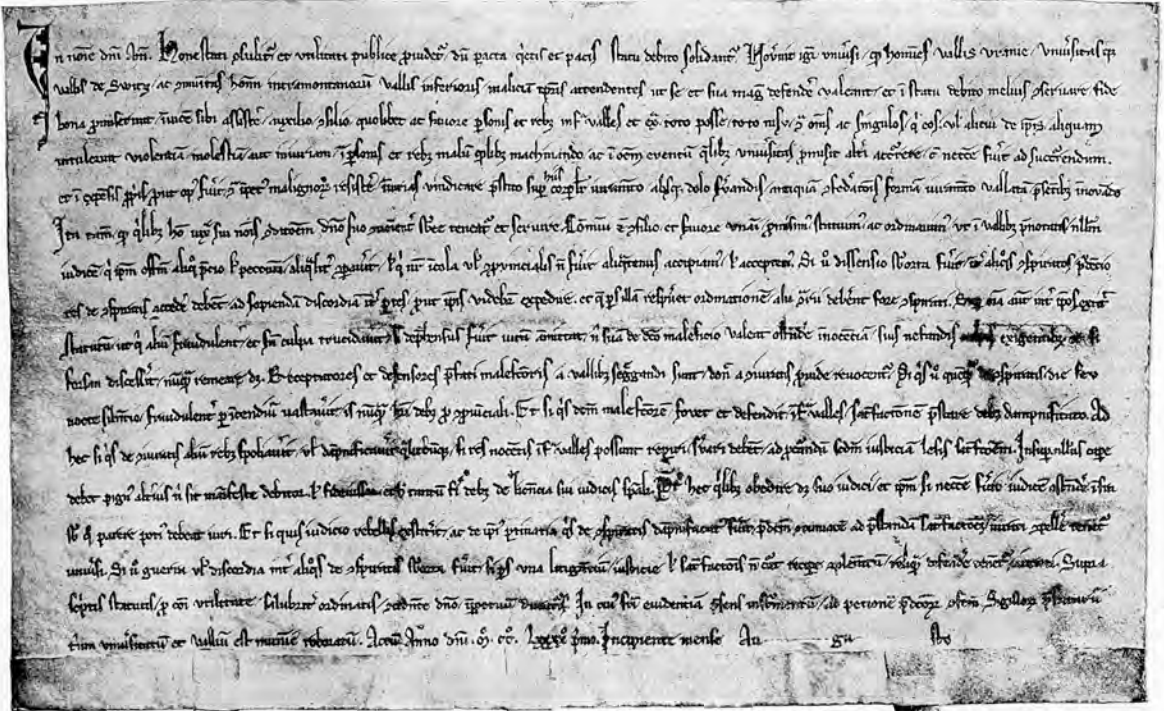 In nōie dn̄i Am̄. Honestati ↄsulit᷑ et vtilitati publice ꝓuidet᷑ dū pacta q̇etis et pacis statu debito solidant᷑ Nov̄int igit᷑ vniu̾si ꝙ homīes vallis vranie vniu̾sitas qꝫ
vallis de Switz ac ↄmūitas homīn intramontanorū vallis inferioris maliciā tp̄ris attendentes ut se et sua mag̾ defende̾ valeant et ī statu debito melius ↄseruare fide
bona ꝓmiserunt īuicē sibi assiste̾ auxilio ↄsilio quolibet ac fauore ꝑsonis et rebꝫ inf̾ valles et ext̾ toto posse toto nisu ↄ̾ om̄s ac singulos q̇ eos vl̾ alicui de ip̄is aliquam
intulerint violentiā molestiā aut iniuriam ī ꝑsonis et rebꝫ malū qd̾libet machinando ac ī oēm euentū q̄libꝫ vniu̾sitas ꝓmisit alt̾i accurrere cū necesse fu̾it ad succ̾rendum
et ī expēsis ꝓp̾is ꝓut op̾ fu̾it ↄ̾ īpet᷑ malignoꝝ resiste̾ īiurias vindicare p̾stito sup̾ his corꝑalit̾ iuramēto absqꝫ dolo s̾uandis antiquā ↄfed̾atōis formā iuramēto vallatā p̄sētibꝫ īnouādo
Ita tam̄ ꝙ q̇libꝫ homo iux̾ sui nois ↄditōem dn̄o suo ↄueniēt̾ sb̾esse teneat᷑ et seruire Cōmuni et̾ ↄsilio et fauore vnanimi ꝓmisim᷒ statuim᷒ ac ordinauim᷒ vt ī vallibꝫ p̾notatis nullū
iudicē q̇ ip̄m officiū aliq̾ p̄cio vl̾ peccunia aliq̾lit̾ ↄpau̾it vl̾ q̇ nr̄ īcola vl̾ ↄprouincialis n̄ fu̾it aliq̾tenus accipiam᷒ vl̾ acceptem᷒ Si v̾o dissensio sub̾orta fu̾it int̾ aliq̾s ↄspiratos p̾denciores
de ↄspiratis accede̾ debent ad sopiendā discordiā int̾ ꝑtes ꝓut ip̄is videbit᷑ expedire et q̄ ꝑs illā respueret ordinationē alii ↄ̾rii deberent fore ↄspirati Sup̾ oīa aut̄ int̾ ip̄os extitit
statutū ut q̇ aliū fraudulent̾ et sn̄ culpa trucidau̾it si dep̾hensus fu̾it vitā amittat n̄ suā de dc̄o maleficio valeat ostende̾ īnocēciā suis nefandis culpis exigentibꝫ et si
forsan discess̾it nūqꝫ remeare dꝫ Receptatores et defensores p̾fati malefc̄oris a vallibꝫ seg̾gandi sunt don̄ a ↄiuratis ꝓuide reuocent᷑ Si q̇s v̾o queqꝫ de ↄspiratis die seu
nocte silencio fraudulent̾ ꝑ īcendiū vastau̾it is nūqꝫ haberi debꝫ ꝓ ↄprouīciali Et si q̇s dictū malefc̄orē fovet et defendit īf̾ valles satisfactionē p̾stare debꝫ dampnificato Ad
hec si q̇s de ↄiuratis aliū rebꝫ spoliau̾it vl̾ dāpnificau̾it q̾litcūqꝫ si res nocētis īf̾ valles possunt repiri s̾uari debēt ad ꝓcurandā scd̄m iusticiā lesis satisfactōem Insup̾ nullus cape̾
debet pign᷒ alterius n̄ sit manifeste debitor vl̾ fideiussor et hoc tantū fi̾ debꝫ de licencia sui iudicis spāli Preter hec q̇libꝫ obedire dꝫ suo iudici et ip̄m si necesse fu̾it iudicē ostende̾ īf̾
sb̾ q̇ parere poti᷒ debeat iuri Et si quis iudicio rebellis exstit̾it ac de ip̄i᷒ ꝑtinacia q̇s de ↄspiratis dāpnificat᷒ fu̾it p̾dc̄m ↄtumacē ad p̾standā satisfactionē iurati ↄpelle̾ tenent᷑
vniu̾si Si v̾o guerra vl̾ discordia int̾ aliq̾s de ↄspiratis sub̾orta fu̾it si ꝑs vna litigantiū iusticie vl̾ satisfactōis n̄ curat recipe̾ ↄplementū reliq̾ defende̾ tenent᷑ ↄiurati Supra
sc̾ptis statutis ꝓ cōi vtilitate salubrit̾ ordinatis ↄcedente dn̄o īꝑpetuū duratur̾ In cui᷒ fc̄i euidenciā p̄sens īstrumentū ad petitionē p̾dictoꝝ ↄfectū Sigilloꝝ p̾fatarū
trium vniu̾sitatū et valliū est munimīe roboratū Actū Anno dn̄i M̊ CC̊ LXXXX̊ p̾mo Incipiente mense Au gu sto